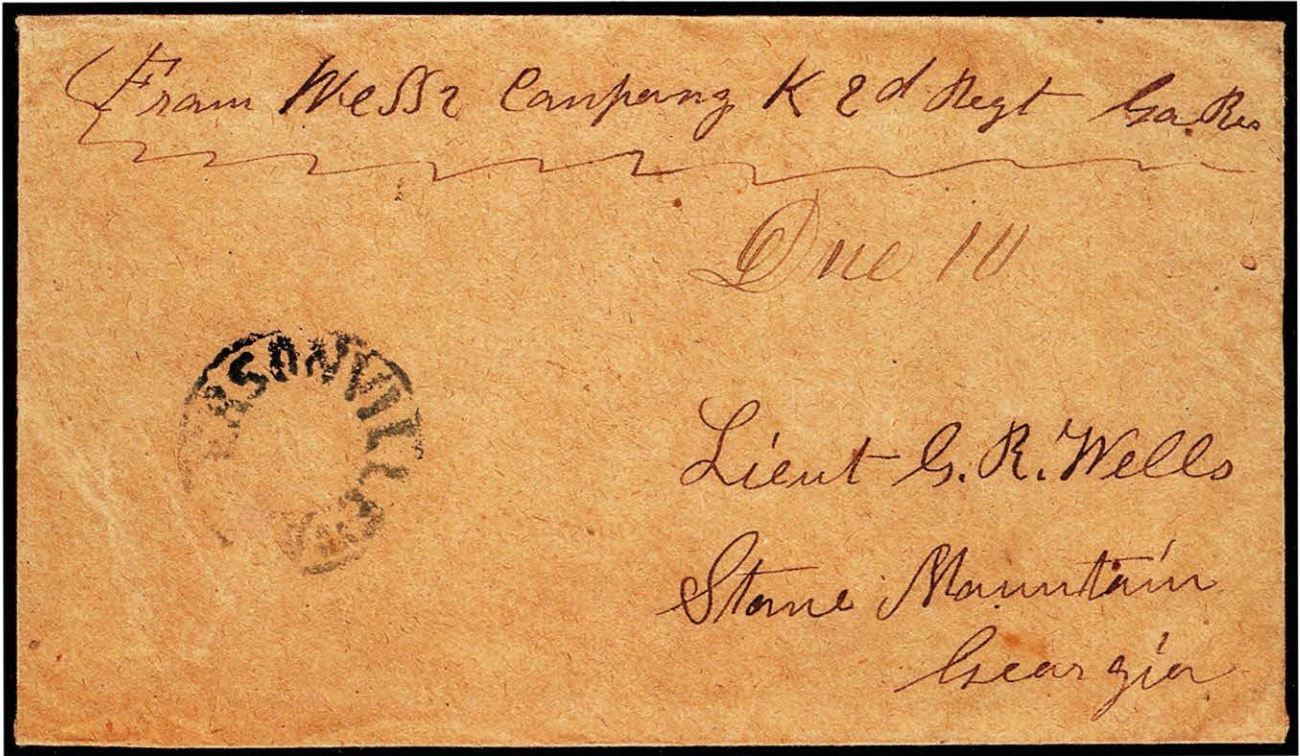 From Company K 2d Regt Ga Res
Due 10
ERSONVILLE
Lieut G. R. Wells
Stone Mountain
Georgia